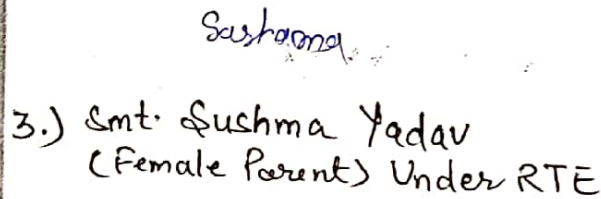 Sashama
3.) Smt. Sushma Yadav
(Female Parent) Under RTE